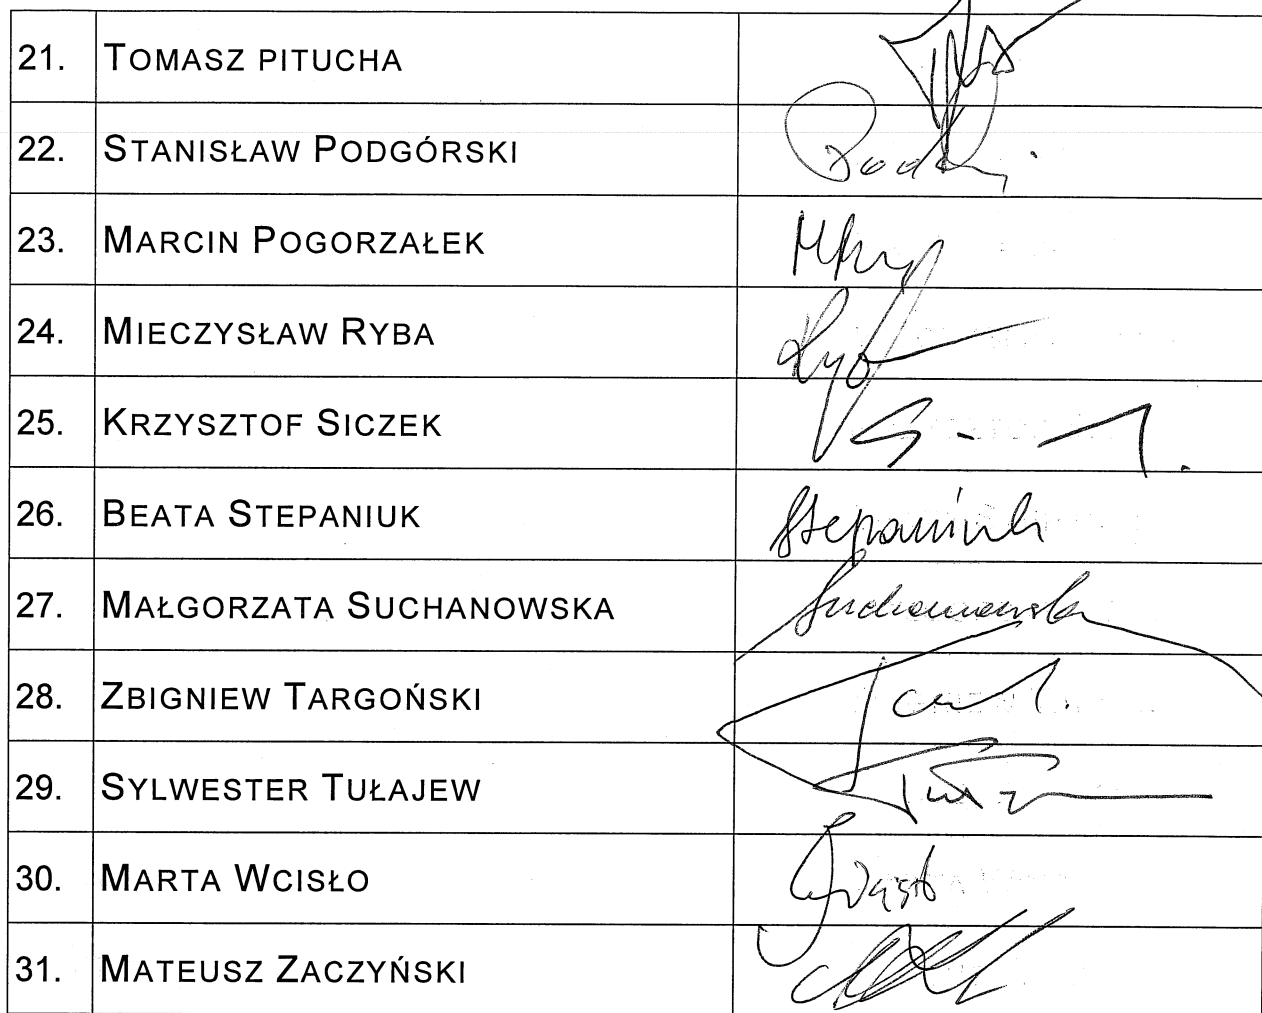 21. TOMASZ PITUCHA
22. STANISŁAW PODGÓRSKI
23. MARCIN POGORZAŁEK
24. MIECZYSŁAW RYBA
25. KRZYSZTOF SICZEK
26. BEATA STEPANIUK Stepaniuk
27. MAŁGORZATA SUCHANOWSKA Suchanowska
28. ZBIGNIEW TARGOŃSKI
29. SYLWESTER TUŁAJEW
30. MARTA WCISŁO
31. MATEUSZ ZACZYŃSKI